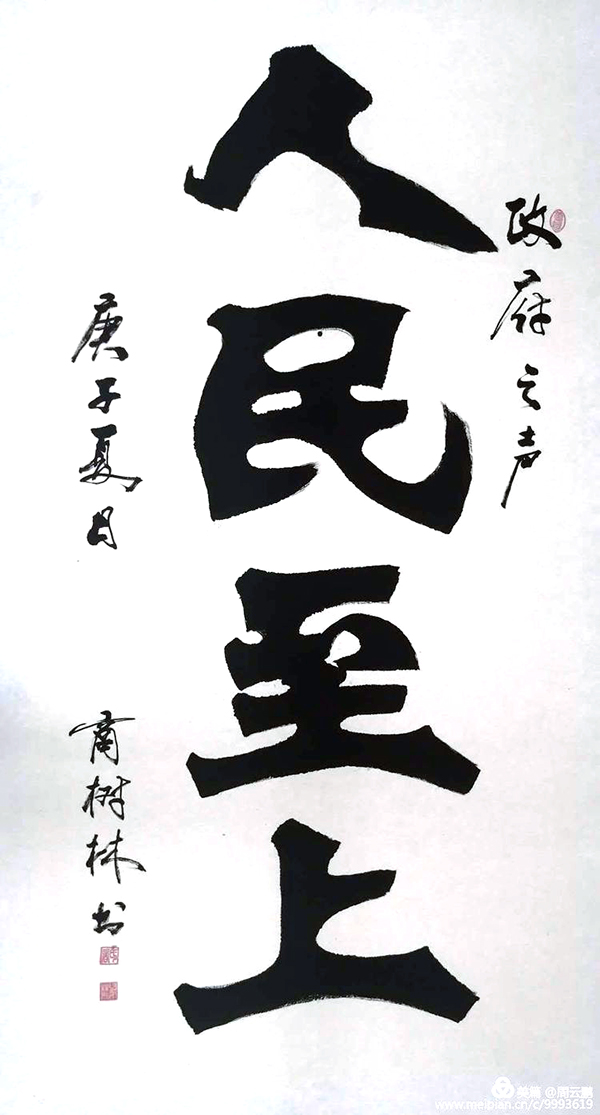 政府之声
人民至上
庚子夏月
商树林书
美篇 @周云鹏
www.meibian.cn/c/9993619